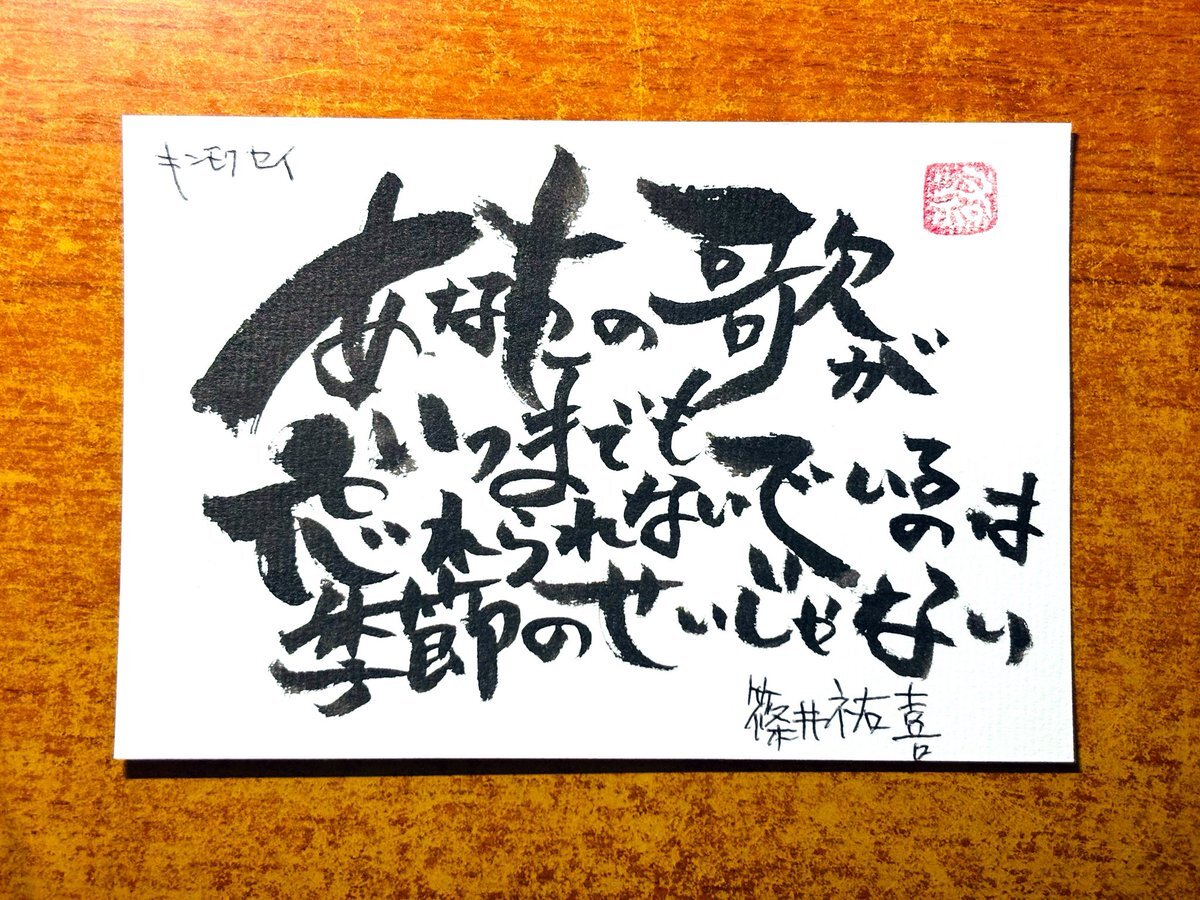 キンモクセイ
あなたの歌が
いつまでも
忘れられないでいるのは
季節のせいじゃない
篠井祐喜